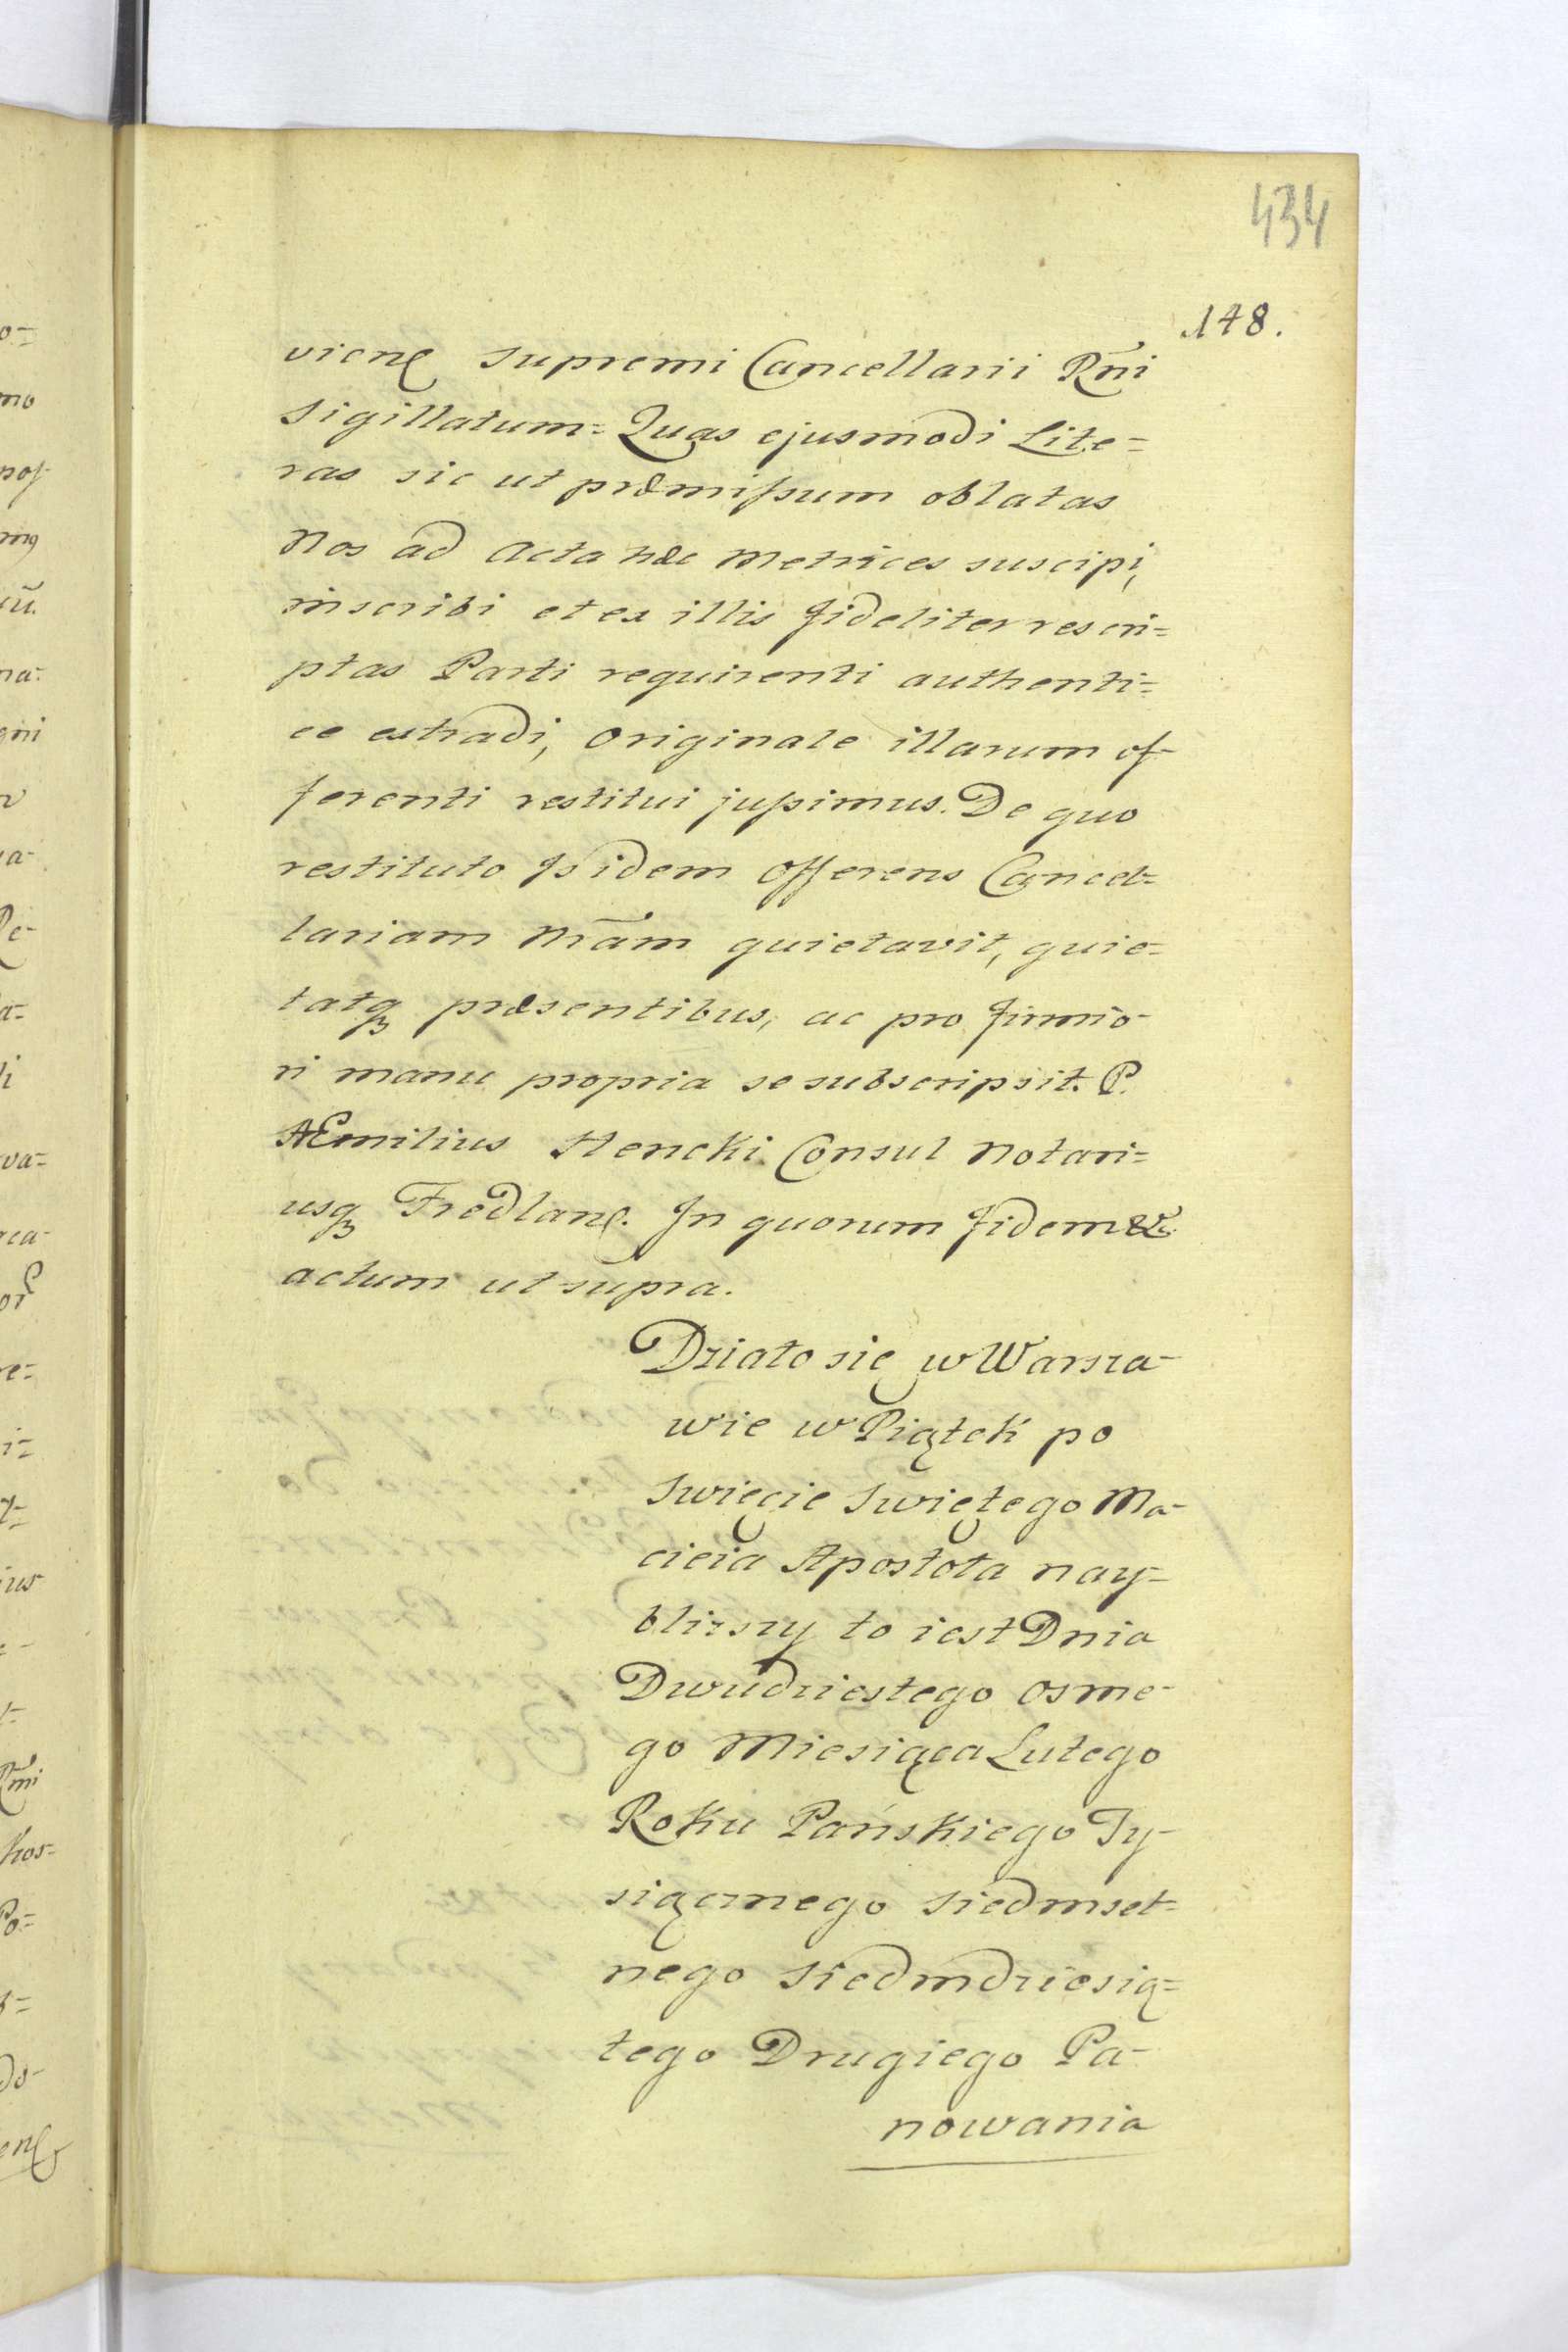 434
148.
vienę supremi Cancellarii Rñi
Sigillatum = Quas ejusmodi Lite=
ras sic ut præmissum oblatas
Nos ad Acta hæc Metrices suscipi,
inscribi et ex illis fideliter rescri=
ptas Parti requirenti authenti=
ce extradi, Originale illarum of-
ferenti restitui jussimus. De quo
restituto Isidem Offerens Cancel=
lariam Nrãm quietavit, quie=
tatqꝫ præsentibus, ac pro firmio-
ri manu propria se subscripsit. P.
Æmilius Hencki Consul Notari=
usqꝫ Fredlanę. In quorum fidem &c.
actum ut supra.
Działo się w Warsza-
wie w Piątek po
Swięcie Swiętego Ma-
cieia Apostoła nay-
blizszy to iest Dnia
Dwudziestego Osme-
go Miesiąca Lutego
Roku Pańskiego Ty-
siącznego Siedmset=
nego Siedmdziesią=
tego Drugiego Pa-
nowania